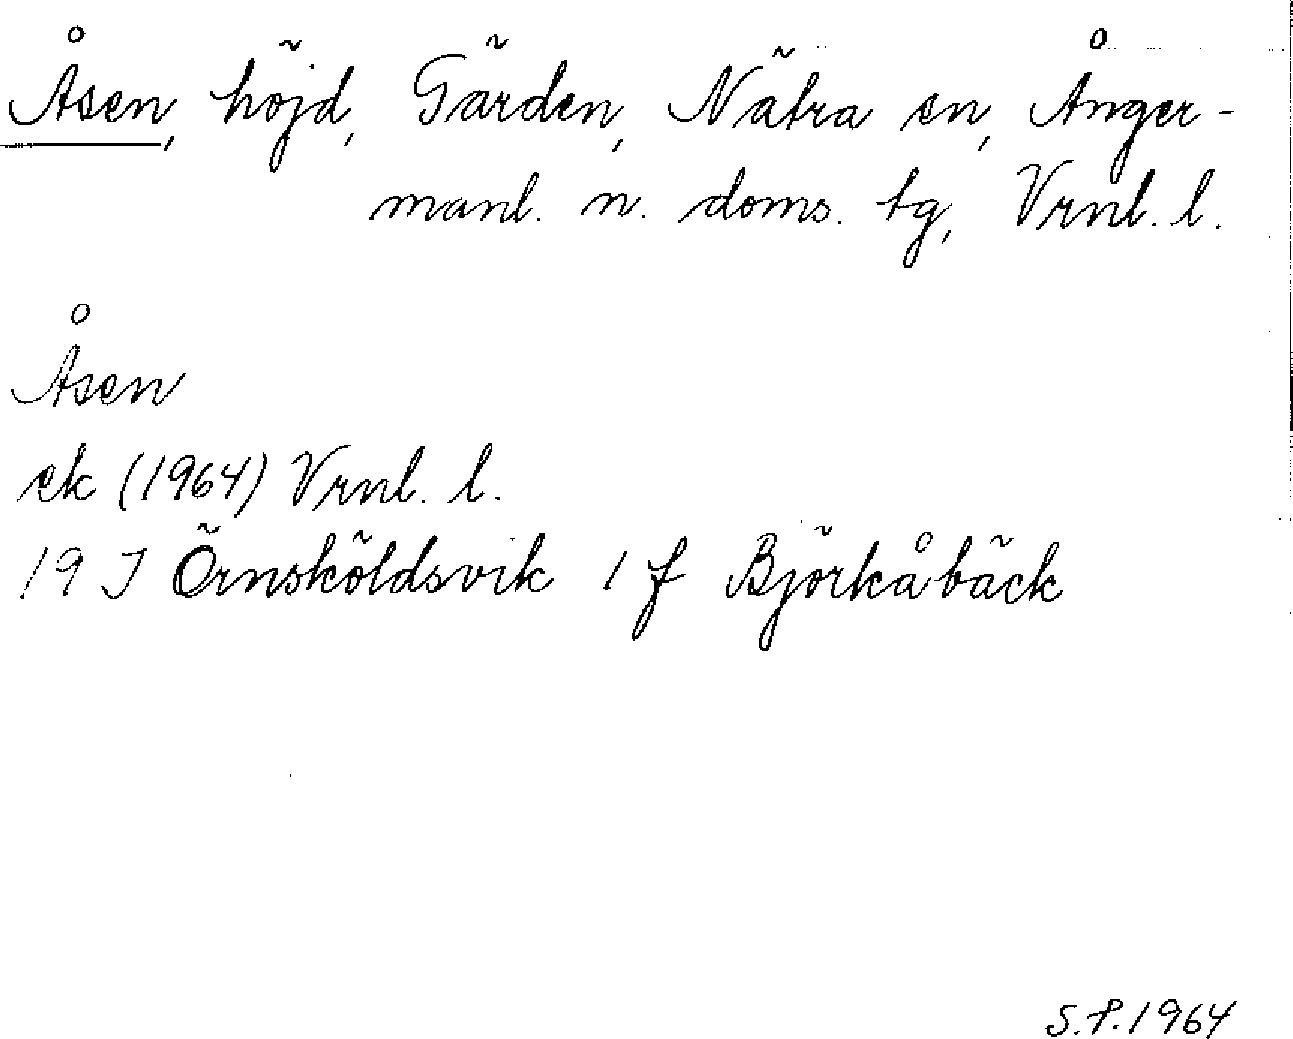 Åsen, höjd, Gärden, Nätra sn, Ånger-
manl. n. doms. tg, Vrnl. l.
Åsen
ek (1964) Vrnl. l.
19 J Örnsköldsvik 1 f Björkåbäck
S.P. 1964